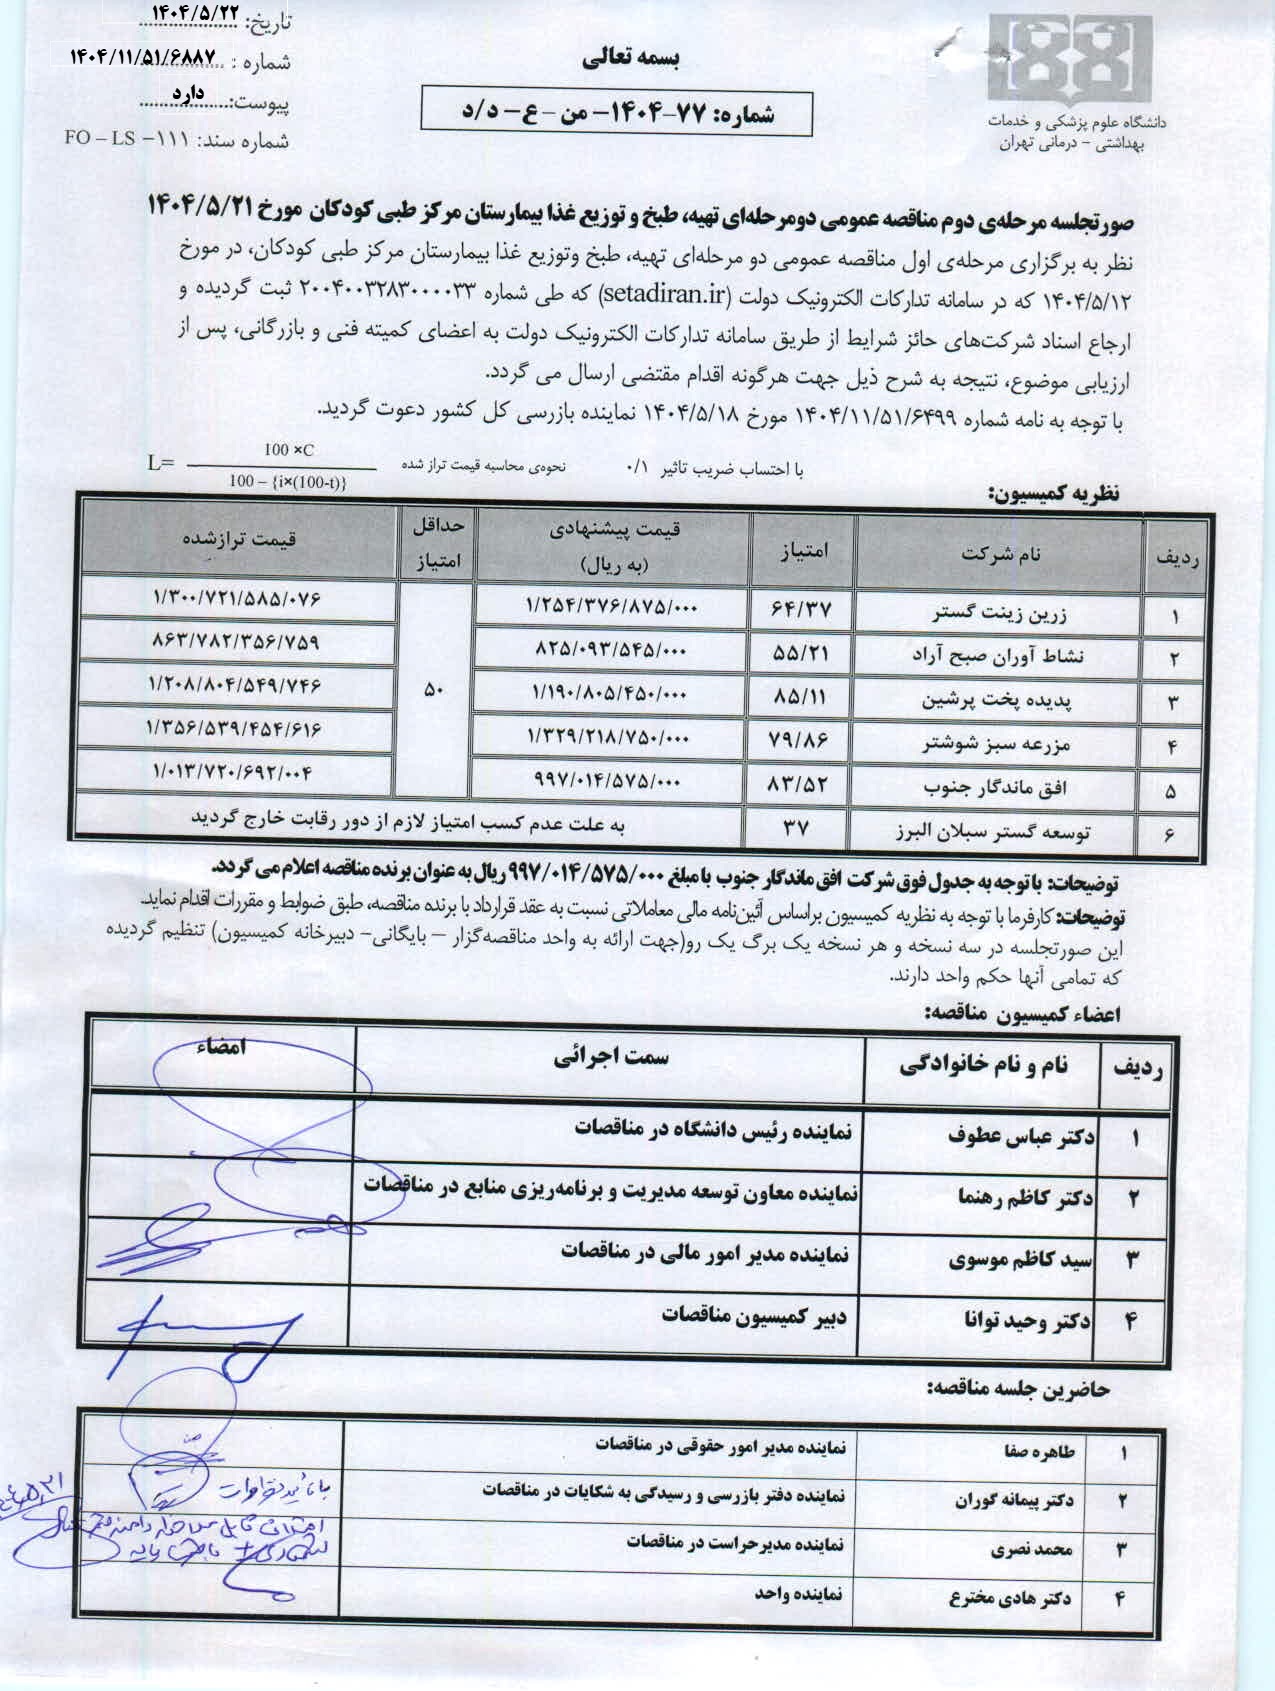 تاریخ: ۱۴۰۴/۵/۲۲
شماره : ۱۴۰۴/۱۱/۵۱/۶۸۸۷
پیوست: دارد
شماره سند: FO – LS – ۱۱۱
بسمه تعالی
شماره: ۷۷-۱۴۰۴- من - ع - د/د
دانشگاه علوم پزشکی و خدمات
بهداشتی - درمانی تهران
صورتجلسه مرحله‌ی دوم مناقصه عمومی دومرحله‌ای تهیه، طبخ و توزیع غذا بیمارستان مرکز طبی کودکان مورخ ۱۴۰۴/۵/۲۱
نظر به برگزاری مرحله‌ی اول مناقصه عمومی دو مرحله‌ای تهیه، طبخ وتوزیع غذا بیمارستان مرکز طبی کودکان، در مورخ
۱۴۰۴/۵/۱۲ که در سامانه تدارکات الکترونیک دولت (setadiran.ir) که طی شماره ۲۰۰۴۰۰۳۲۸۳۰۰۰۰۳۳ ثبت گردیده و
ارجاع اسناد شرکت‌های حائز شرایط از طریق سامانه تدارکات الکترونیک دولت به اعضای کمیته فنی و بازرگانی، پس از
ارزیابی موضوع، نتیجه به شرح ذیل جهت هرگونه اقدام مقتضی ارسال می گردد.
با توجه به نامه شماره ۱۴۰۴/۱۱/۵۱/۶۴۹۹ مورخ ۱۴۰۴/۵/۱۸ نماینده بازرسی کل کشور دعوت گردید.
با احتساب ضریب تاثیر ۰/۱ نحوه‌ی محاسبه قیمت تراز شده L= 100 ×C
100 – {i×(100-t)}
نظریه کمیسیون:
ردیف نام شرکت امتیاز قیمت پیشنهادی (به ریال) حداقل امتیاز قیمت ترازشده
۱ زرین زینت گستر ۶۴/۳۷ ۱/۲۵۴/۳۷۶/۸۷۵/۰۰۰ ۱/۳۰۰/۷۲۱/۵۸۵/۰۷۶
۲ نشاط آوران صبح آراد ۵۵/۲۱ ۸۲۵/۰۹۳/۵۴۵/۰۰۰ ۸۶۳/۷۸۲/۳۵۶/۷۵۹
۳ پدیده پخت پرشین ۸۵/۱۱ ۱/۱۹۰/۸۰۵/۴۵۰/۰۰۰ ۵۰ ۱/۲۰۸/۸۰۴/۵۴۹/۷۴۶
۴ مزرعه سبز شوشتر ۷۹/۸۶ ۱/۳۲۹/۲۱۸/۷۵۰/۰۰۰ ۱/۳۵۶/۵۳۹/۴۵۴/۶۱۶
۵ افق ماندگار جنوب ۸۳/۵۲ ۹۹۷/۰۱۴/۵۷۵/۰۰۰ ۱/۰۱۳/۷۲۰/۶۹۲/۰۰۴
۶ توسعه گستر سبلان البرز ۳۷ به علت عدم کسب امتیاز لازم از دور رقابت خارج گردید
توضیحات: با توجه به جدول فوق شرکت افق ماندگار جنوب با مبلغ ۹۹۷/۰۱۴/۵۷۵/۰۰۰ ریال به عنوان برنده مناقصه اعلام می گردد.
توضیحات: کارفرما با توجه به نظریه کمیسیون براساس آئین‌نامه مالی معاملاتی نسبت به عقد قرارداد با برنده مناقصه، طبق ضوابط و مقررات اقدام نماید.
این صورتجلسه در سه نسخه و هر نسخه یک برگ یک رو(جهت ارائه به واحد مناقصه‌گزار – بایگانی- دبیرخانه کمیسیون) تنظیم گردیده
که تمامی آنها حکم واحد دارند.
اعضاء کمیسیون مناقصه:
ردیف نام و نام خانوادگی سمت اجرائی امضاء
۱ دکتر عباس عطوف نماینده رئیس دانشگاه در مناقصات
۲ دکتر کاظم رهنما نماینده معاون توسعه مدیریت و برنامه‌ریزی منابع در مناقصات
۳ سید کاظم موسوی نماینده مدیر امور مالی در مناقصات
۴ دکتر وحید توانا دبیر کمیسیون مناقصات
حاضرین جلسه مناقصه:
۱ طاهره صفا نماینده مدیر امور حقوقی در مناقصات
۲ دکتر پیمانه گوران نماینده دفتر بازرسی و رسیدگی به شکایات در مناقصات
۳ محمد نصری نماینده مدیرحراست در مناقصات
۴ دکتر هادی مخترع نماینده واحد